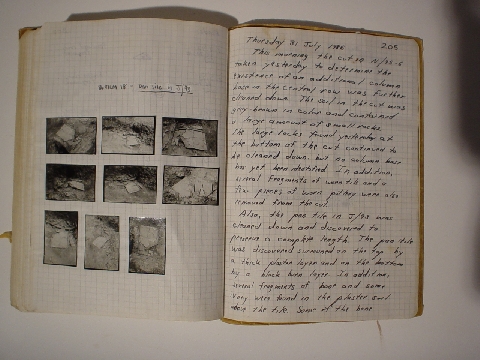 Pan tile in J/98
Thursday 31 July 1986 205
This morning the cut in N/95-6
taken yesterday to determine the
existence of an additional column
base in the central row was further
cleaned down. The soil in the cut was
grey-brown in color and contained
a large amount of small rocks.
The large rocks found yesterday at
the bottom of the cut continued to
be cleaned down, but no column base
has yet been identified. In addition,
several fragments of worn tile and a
few pieces of worn pottery were also
removed from the cut.
Also, the pan tile in J/98 was
cleaned down and discovered to
preserve a complete length. The pan tile
was discovered surrounded on the top by
a thick plaster layer and on the bottom
by a black burn layer. In addition,
several fragments of bone and some
very were found in the plaster soil
above the tile. Some of the bone